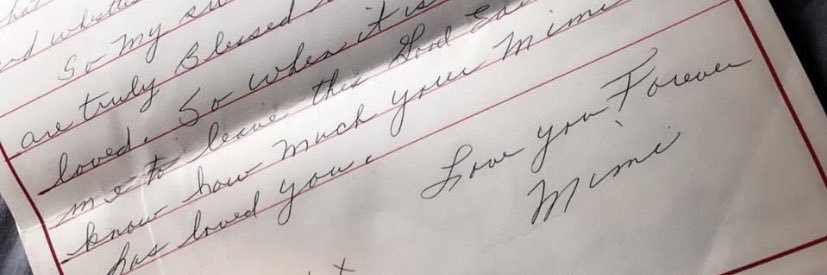 that
and whittle
So my su
are truly Blessed
loved. So when it is
me to leave this Good Ea
know how much your Mimi
has loved you.
Love you Forever
Mimi
x